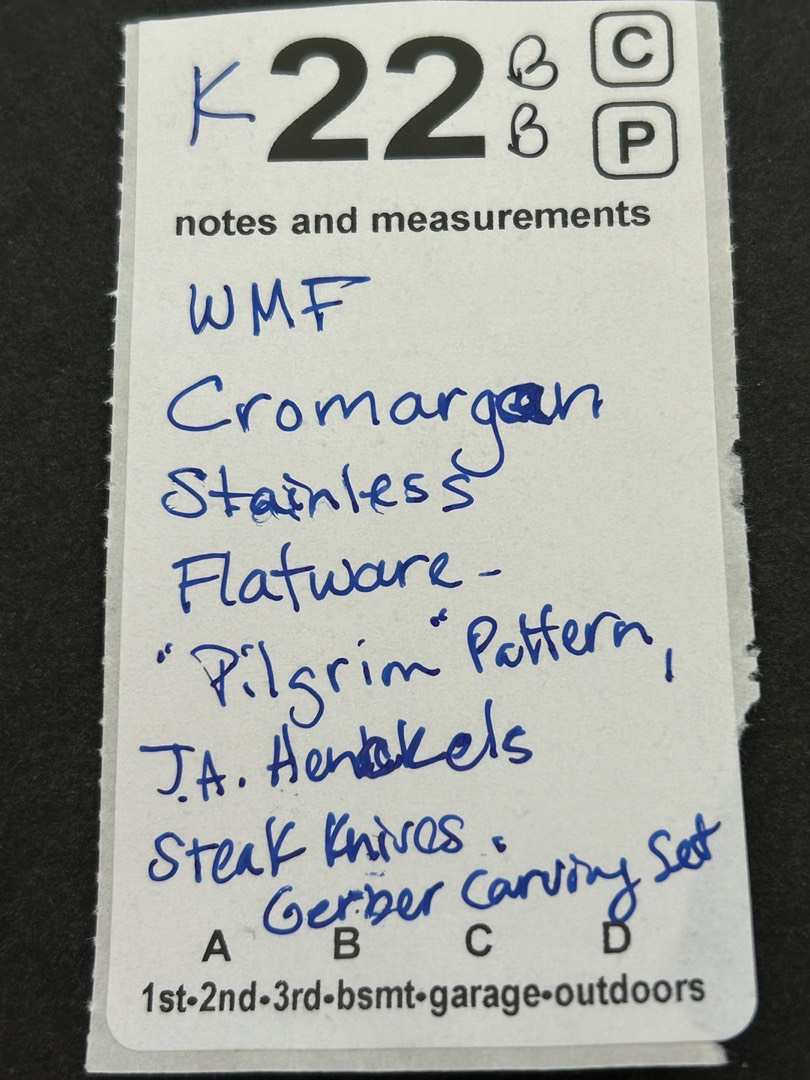 K 22 B C
B P
notes and measurements
WMF
Cromargan
Stainless
Flatware -
"Pilgrim" Pattern,
J.A. Henckels
Steak Knives.
Gerber Carving Set
A B C D
1st•2nd•3rd•bsmt•garage•outdoors